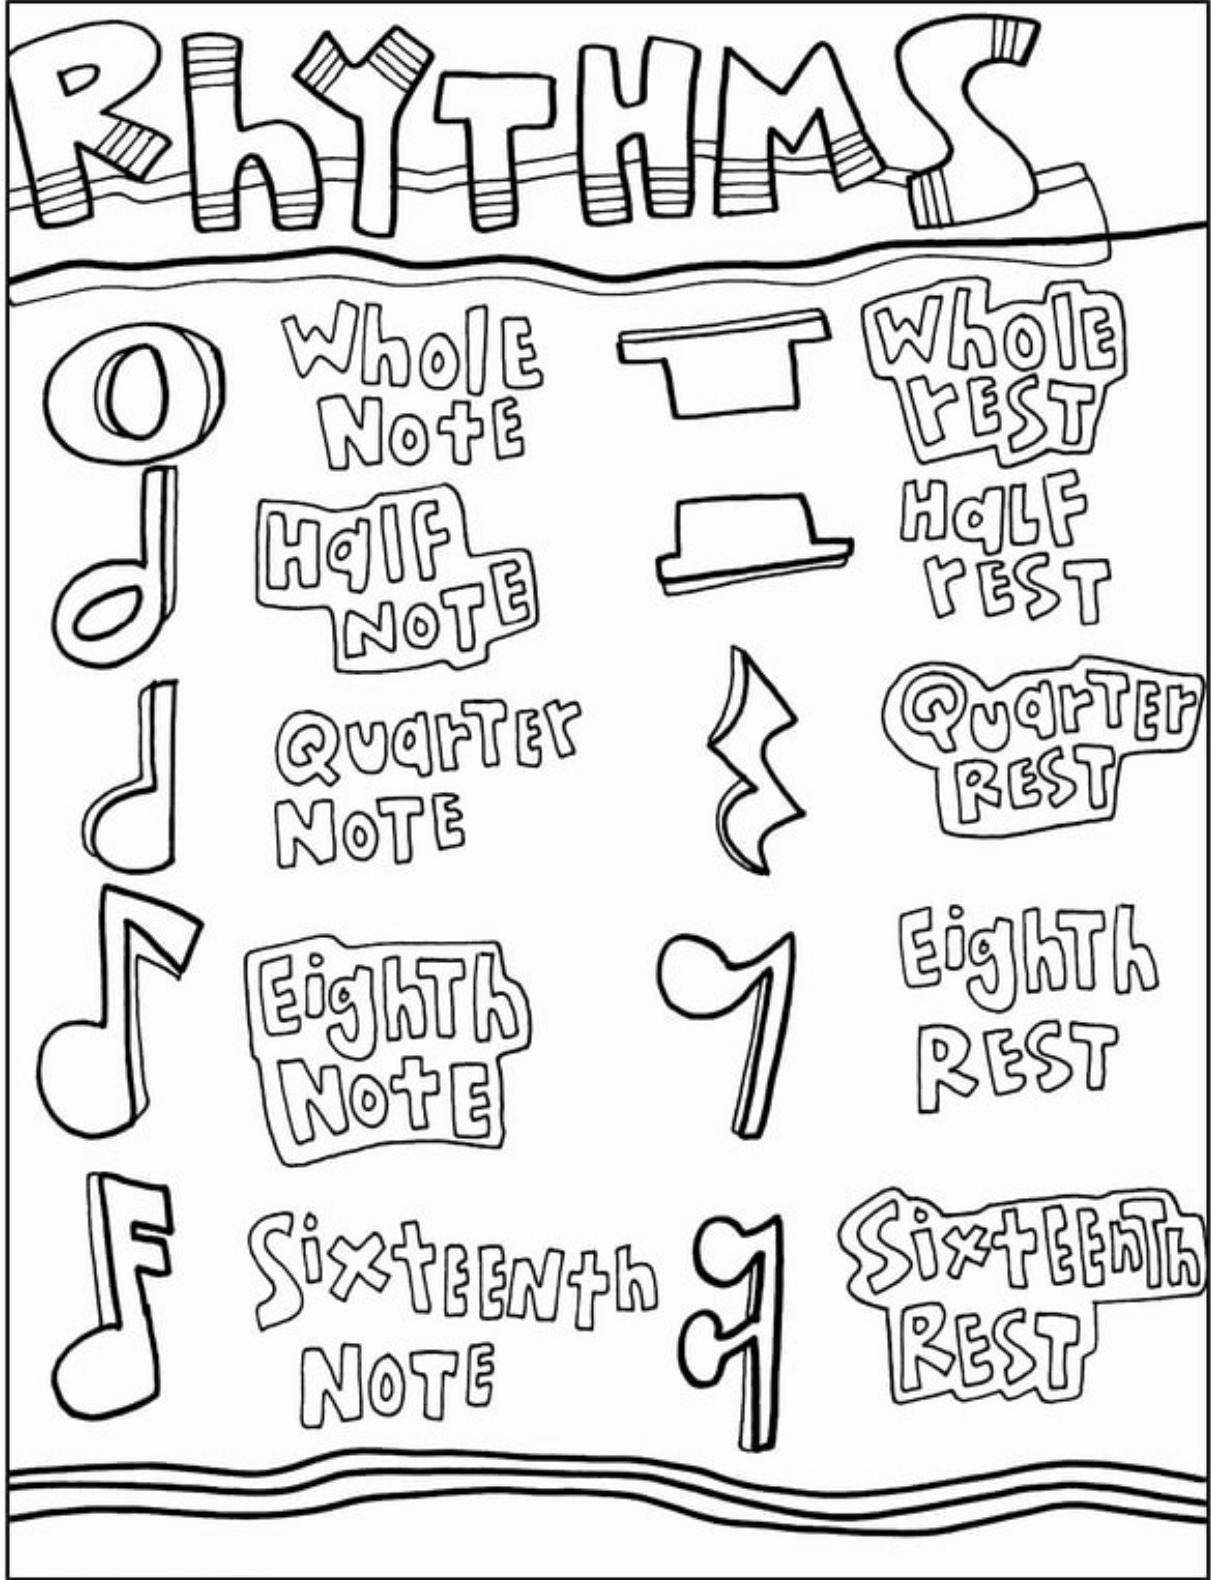 RhYTHMS
Whole
Note
Whole
rEST
Half
NOTE
Half
rEST
QuarTEr
NOTE
QuarTEr
REST
EighTh
NotE
EighTh
REST
SixtEENth
NOTE
SixtEEnTh
REST